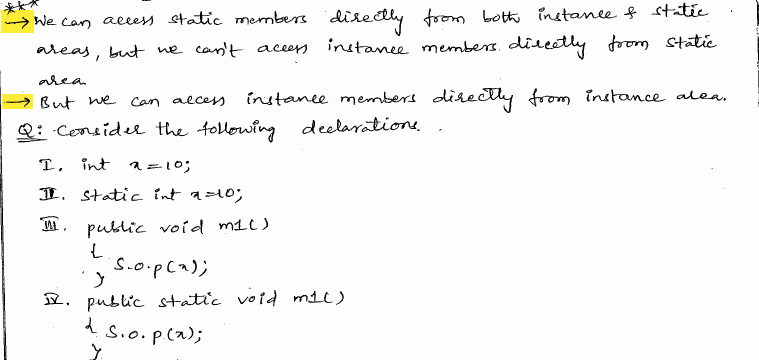 ***
→ We can access static members directly from both instance & static
areas, but we can't access instance members directly from static
area.
→ But we can access instance members directly from instance area.
Q: Consider the following declarations.
I. int x=10;
II. static int x=10;
III. public void m1()
{
S.o.p(x);
}
IV. public static void m1()
{
S.o.p(x);
}